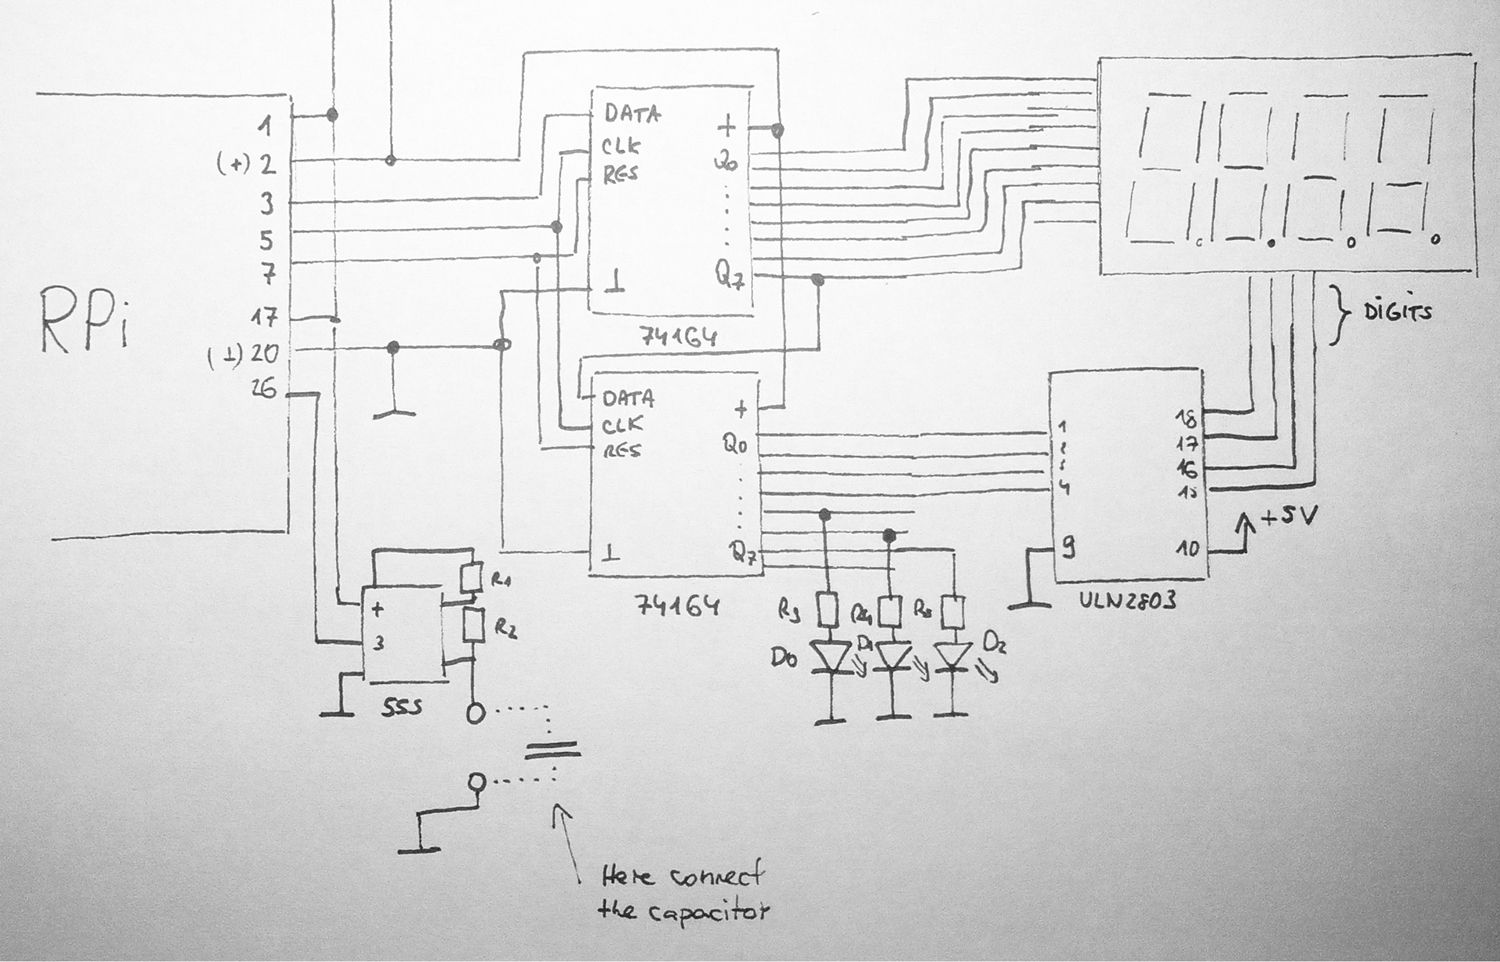 1
(+) 2
3
5
7
17
(⊥) 20
26
RPi
DATA
CLK
RES
⊥
+
Q0
Q7
74164
DATA
CLK
RES
⊥
+
Q0
Q7
74164
DIGITS
1
2
3
4
9
18
17
16
15
10
+5V
ULN2803
+
3
555
R1
R2
R3
R4
R5
D0
D1
D2
Here connect
the capacitor